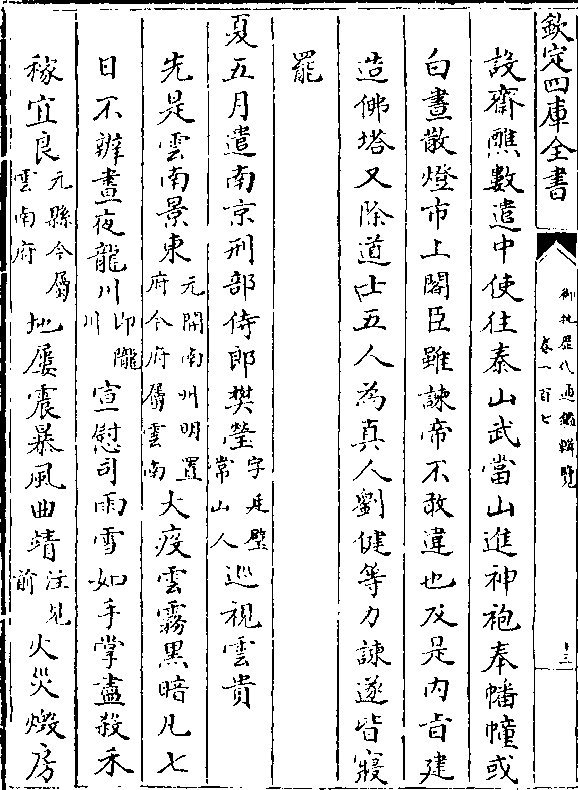 欽定四庫全書
御批歷代通鑑輯覽
卷一百七
十三
設齋醮數遣中使往泰山武當山進神袍奉幡幢或
白晝散燈市上閣臣雖諫帝不敢違也及是內旨建
造佛塔又除道士五人為真人劉健等力諫遂皆寢
罷
夏五月遣南京刑部侍郎樊瑩字廷璧常山人巡視雲貴
先是雲南景東元開南州明置府今府屬雲南大疫雲霧黑暗凡七
日不辨晝夜龍川即隴川宣慰司雨雪如手掌盡殺禾
稼宜良元縣今屬雲南府地屢震暴風曲靖注見前火災燬房